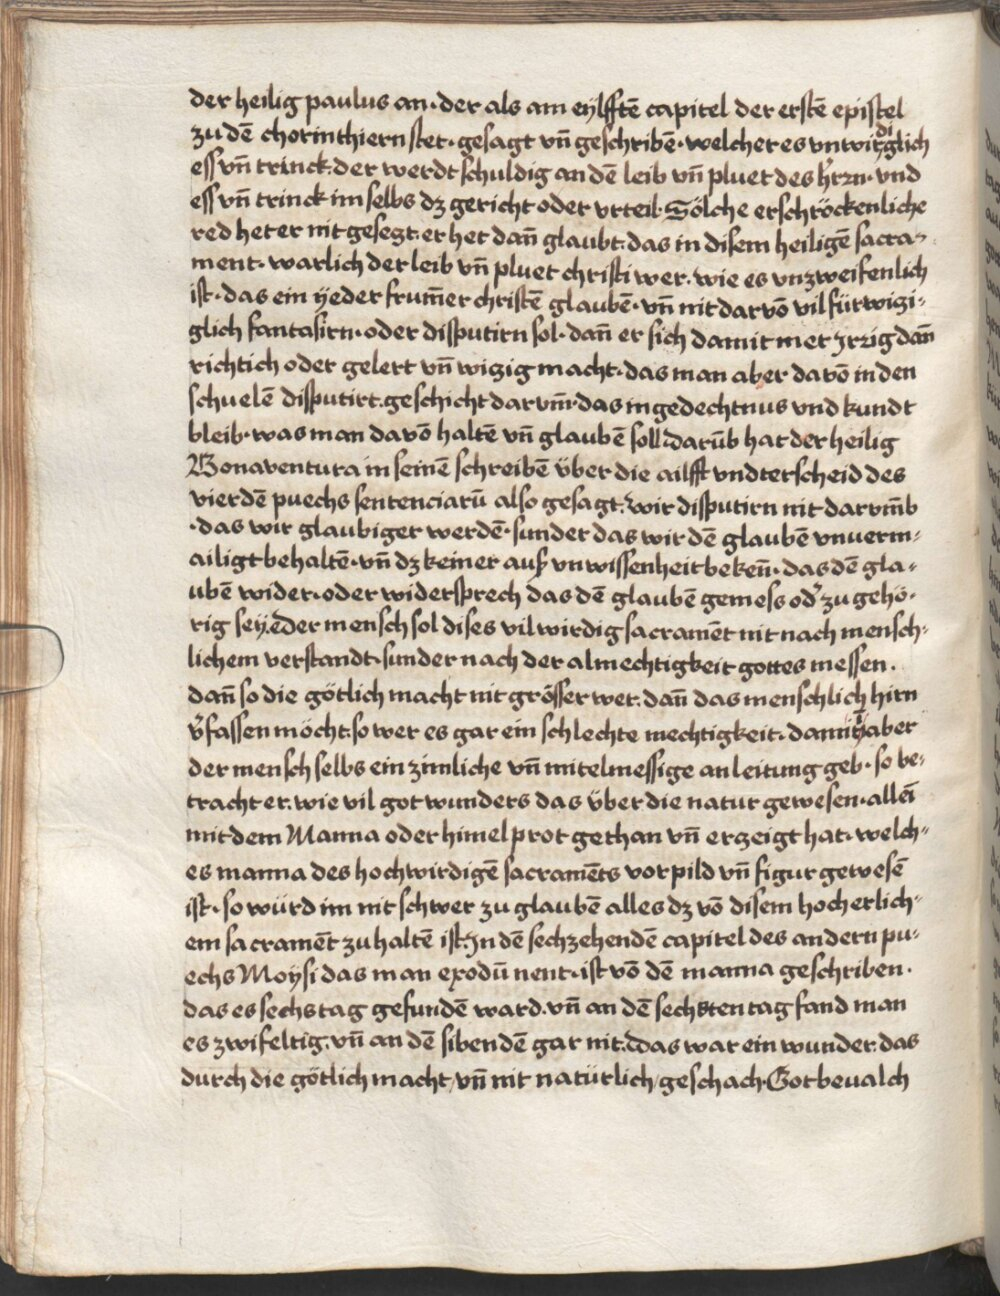 der heilig paulus an · der als am eylfftē capitel der erstē epistel
zu dē chorinthiern stet · gesagt vn̄ geschribē · welcher es vnwirdiglich
ess vn̄ trinck. der werdt schuldig an dē leib vn̄ pluet des hr̄rn · vnd
ess vn̄ trinck im selbs dz gericht oder vrteil · Sölche erschröckenliche
red het er nit gesezt. er het dan̄ glaubt. das in disem heiligē sacra-
ment · warlich der leib vn̄ pluet christi wer. wie es vnzweifenlich
ist · das ein ÿeder frum̄er christē glaubē · vn̄ nit darvō vil fürwizi-
glich fantasirn · oder disputirn sol · dan̄ er sich damit mer Jrrig dan̄
richtich oder gelert vn̄ wizig macht · das man aber davō in den
schuelē disputirt. geschicht darvm̄ · das in gedechtnus vnd kundt
bleib · was man davō haltē vn̄ glaubē soll. darūb hat der heilig
Bonaventura in seinē schreibē über die ailfft vndterscheid des
vierdē puechs sentenciarū also gesagt. wir disputirn nit darvm̄b
· das wir glaubiger werdē · sunder das wir dē glaubē vnverm-
ailigt behaltē · vn̄ dz keiner auß vnwissenheit beken̄ · das dē gla-
ubē wider · oder widersprech das dē glaubē gemess od' zu gehö-
rig sey. Der mensch sol dises vilwirdig sacramēt nit nach mensch-
lichem verstandt · sunder nach der almechtigkeit gottes messen ·
dan̄ so die götlich macht nit grösser wer. dan̄ das menschlich hirn
v'fassen möcht. so wer es gar ein schlechte mechtigkeit · damit aber
der mensch selbs ein zimliche vn̄ mitelmessige anleitung geb · so be-
tracht er. wie vil got wunders das über die natur gewesen · alleī
mit dem Manna oder himelprot gethan vn̄ erzeigt hat · welch-
es manna des hochwirdigē sacramēts vorpild vn̄ figur gewesē
ist · so würd im nit schwer zu glaubē alles dz vō disem hocherlich-
em sacramēt zu haltē ist. In dē sechzehendē capitel des andern pu-
echs Moÿsi das man exodū nent · ist vō dē manna geschriben ·
das es sechs tag gefundē ward. vn̄ an dē sechsten tag fand man
es zwifeltig. vn̄ an dē sibendē gar nit. das war ein wunder. das
durch die götlich macht / vn̄ nit natürlich / geschach · Got bevalch